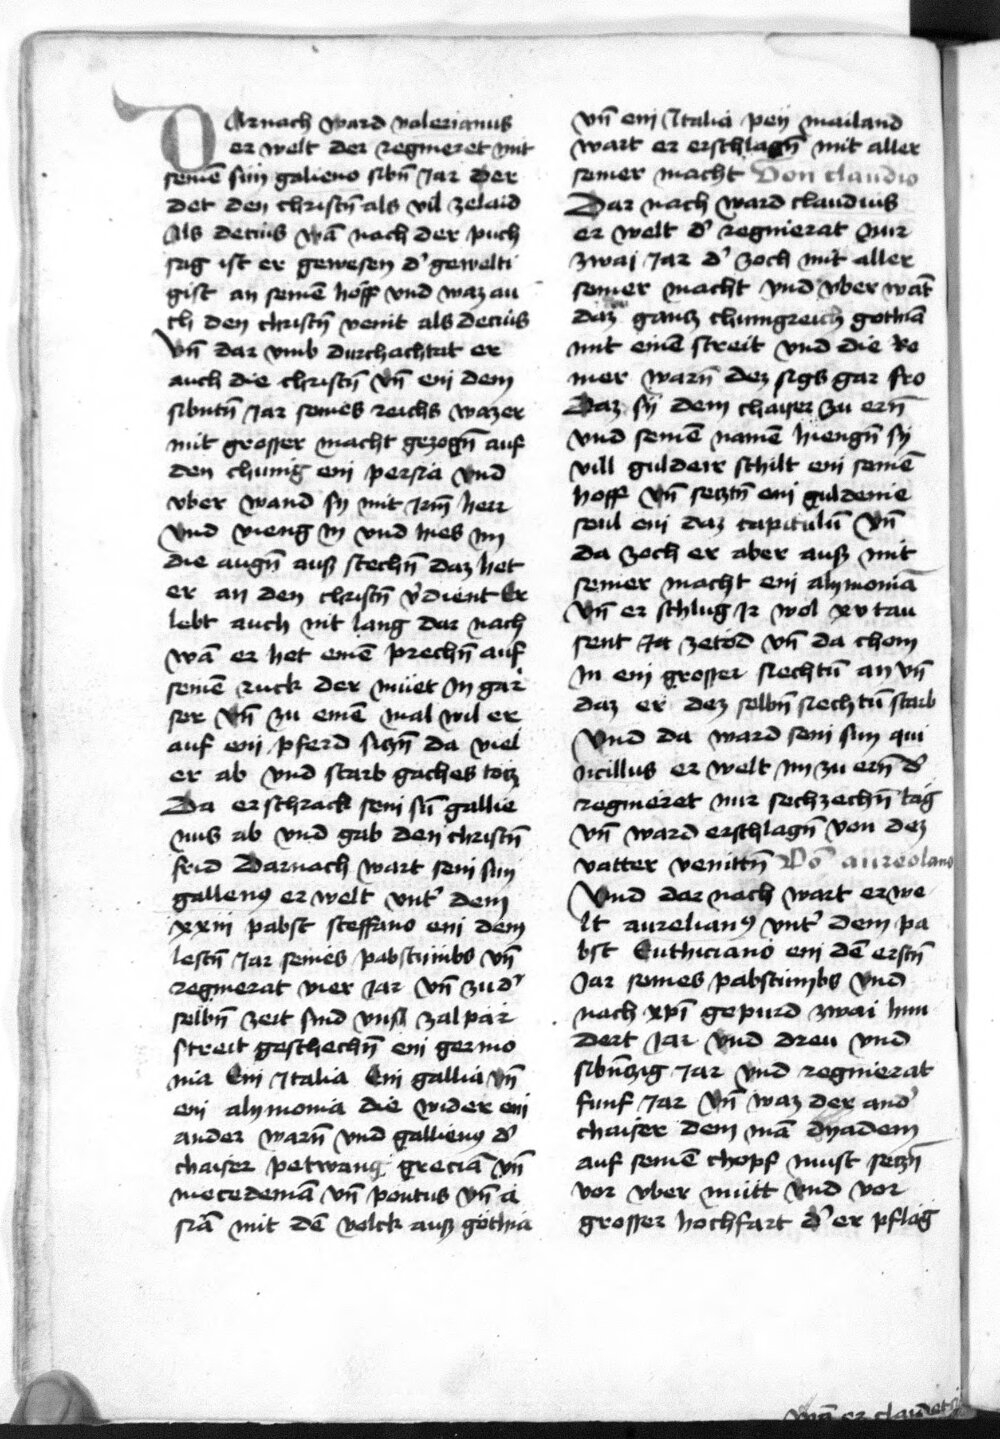 DArnach ward valerianus
er welt der regnieret mit
seinē sun galieno sibn̄ Jar der
det den christn̄ als vil zelaid
Als decius wā nach der puch
sag ist er gewesen d' gewelti
gist an seinē hoff vnd waz au
ch den christn̄ veint als decius
Vn̄ dar vmb durchachtat er
auch die christn̄ vn̄ ein dem
sibntn̄ Jar seines reichs waz er
mit grosser macht gezogn̄ auf
den chunig ein persia vnd
vber wand sy mit Jrm̄ herr
vnd vieng in vnd hies im
die augn̄ ausz stechn̄ daz het
er an den christn̄ v'dient Er
lebt auch nit lang dar nach
wā er het einē prechn̄ auf
seinē ruck der müet in gar
ser vn̄ zu einē mal wil er
auf ein pferd siczn̄ da viel
er ab vnd starb gaches totz
Da erschrack sein sū gallie
nus ab vnd gab den christn̄
frid Darnach wart sein sun
gallenꝰ er welt vnt' dem
xxiii pabst steffano ein dem
lestn̄ Jar seines pabstumbs vn̄
regnierat vier Jar vn̄ zu d'
selbn̄ zeit sind vnsz zal par
streit geschechn̄ ein germo
nia Ein Italia Ein gallia vn̄
ein alymonia die wider ein
ander warn̄ vnd gallienꝰ d'
chaiser petwang greciā vn̄
mecedemiā vn̄ pontus vn̄ a
siā mit dē volck ausz gothia
vn̄ ein Italia peÿ mailand
wart er erschlagn̄ mit aller
seiner macht Von claudio
Dar nach ward claudius
er welt d' regnierat Nur
zwai Jar d' zoch mit aller
seiner macht vnd vber wāt
daz gansz chunigreich gothiā
mit einē streit vnd die Ro
mer warn̄ dez sigs gar fro
Daz sÿ dem chaiser zu ern̄
vnd seinē namē hiengn̄ sy
vill guldein schilt ein seinē
hoff vn̄ secztn̄ ein guldeine
seul ein daz capitulū vn̄
da zoch er aber ausz mit
seiner macht ein alymoniā
vn̄ er schlug Jr wol xv tau
sent Jn zetod vn̄ da chom
in ein grosser siechtū an vn̄
daz er dez selbn̄ siechtū starb
Vnd da ward sein sun qui
ncillus er welt im zu ern̄ d'
regnieret nur sechzechn̄ tag
vn̄ ward erschlagn̄ von dez
vatter veinttn̄ Vō aureolano
Vnd dar nach wart er we
lt aurelianꝰ vnt' dem pa
bst Euthiciano ein dē erstn̄
Jar seines pabstumbs vnd
nach xpī gepurd zwai hun
dert Jar vnd dreu vnd
sibn̄czig Jar vnd regnierat
funf Jar vn̄ waz der and'
chaiser dem mā dyadem
auf seinē chopf must seczn̄
vor vber mütt vnd vor
grosser hochfart d' er pflag